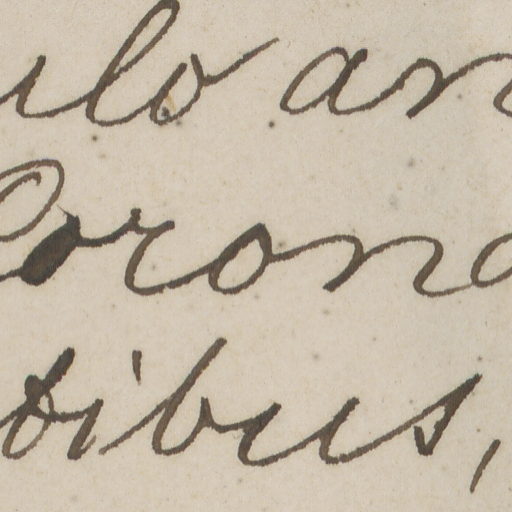 ulo an
Corona
tibus,